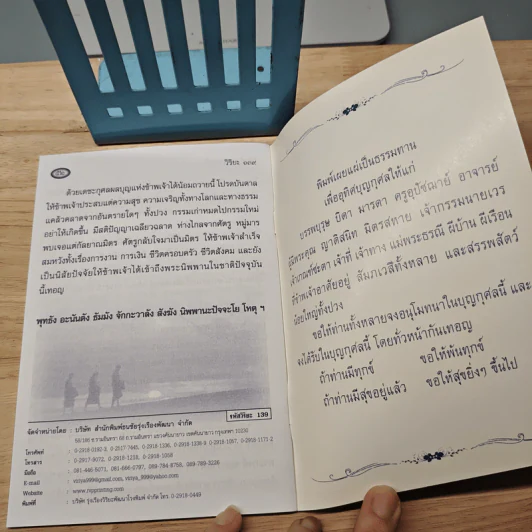 วิริยะ ๑๙๙
ด้วยเดชะกุศลผลบุญแห่งข้าพเจ้าได้น้อมถวายนี้ โปรดบันดาล
ให้ข้าพเจ้าประสบแต่ความสุข ความเจริญทั้งทางโลกและทางธรรม
แคล้วคลาดจากอันตรายใดๆ ทั้งปวง กรรมเก่าหมดไปกรรมใหม่
อย่าให้เกิดขึ้น มีสติปัญญาเฉลียวฉลาด ห่างไกลจากศัตรู หมู่มาร
พบเจอแต่กัลยาณมิตร ศัตรูกลับใจมาเป็นมิตร ให้ข้าพเจ้าสำเร็จ
สมหวังทั้งเรื่องการงาน การเงิน ชีวิตครอบครัว ชีวิตสังคม และยัง
เป็นนิสัยปัจจัยให้ข้าพเจ้าได้เข้าถึงพระนิพพานในชาติปัจจุบัน
นี้เทอญ
พุทธัง อะนันตัง ธัมมัง จักกะวาลัง สังฆัง นิพพานะปัจจะโย โหตุ ฯ
รหัสวิริยะ 139
จัดจำหน่ายโดย : บริษัท สำนักพิมพ์ธนธัชรุ่งเรืองพัฒนา จำกัด
โทรศัพท์
โทรสาร
มือถือ
E-mail
Website
พิมพ์ที่ : บริษัท รุ่งเรืองวิริยะพัฒนาโรงพิมพ์ จำกัด โทร. 0-2918-0449
พิมพ์เผยแผ่เป็นธรรมทาน
เพื่ออุทิศบุญกุศลให้แก่
บรรพบุรุษ บิดา มารดา ครูอุปัชฌาย์ อาจารย์
ผู้มีพระคุณ ญาติสนิท มิตรสหาย เจ้ากรรมนายเวร
เจ้าเกณฑ์ชะตา เจ้าที่ เจ้าทาง แม่พระธรณี ผีบ้าน ผีเรือน
ที่ข้าพเจ้าอาศัยอยู่ สัมภเวสีทั้งหลาย และสรรพสัตว์
น้อยใหญ่ทั้งปวง
ขอให้ท่านทั้งหลายจงอนุโมทนาในบุญกุศลนี้ และ
จงได้รับในบุญกุศลนี้ โดยทั่วหน้ากันเทอญ
ถ้าท่านมีทุกข์ ขอให้พ้นทุกข์
ถ้าท่านมีสุขอยู่แล้ว ขอให้สุขยิ่งๆ ขึ้นไป